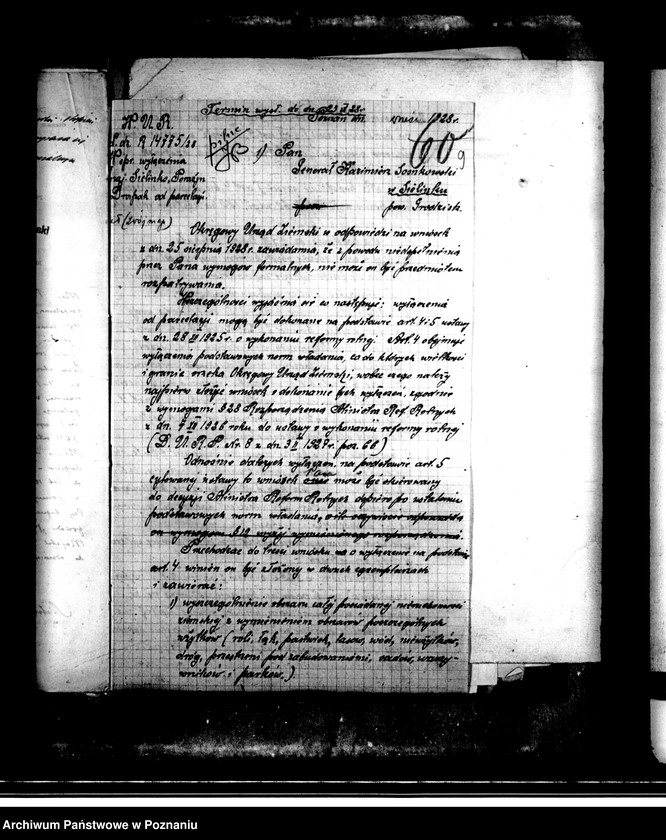 Termin wysł. do dn. 29 IX 28 r.
Poznań dn. września 1928 r.
K. U. R
L. dz. R 14775/28
pilne
60
9
1) Pan
Kspr. wyłączenia
Generał Kazimierz Sosnkowski
maj. Sielinko, Porażyn
w Sielinku
Drapak od parcelacji.
pow. Grodzisk.
Okręgowy Urząd Ziemski w odpowiedzi na wniosek
z dn. 25 sierpnia 1928 r. zawiadamia, że z powodu niedopełnienia
przez Pana wymogów formalnych, nie może on być przedmiotem
rozpatrywania.
W szczególności wyjaśnia się co następuje: wyłączenia
od parcelacji mogą być dokonane na podstawie art. 4 i 5 ustawy
z dn. 28 XII 1925 r. o wykonaniu reformy rolnej. Art. 4 obejmuje
wyłączenia podstawowych norm władania, co do których wielkości
i granic orzeka Okręgowy Urząd Ziemski, wobec czego należy
najpierw złożyć wniosek o dokonanie tych wyłączeń, zgodnie
z wymogami § 28 Rozporządzenia Ministra Ref. Rolnych
z dn. 4 XII 1926 roku do ustawy o wykonaniu reformy rolnej
(D. U. R. P. Nr. 8 z dn. 3 II 1927 r. poz. 66)
Odnośnie dalszych wyłączeń, na podstawie art. 5
cytowanej ustawy to wniosek Pana może być skierowany
do decyzji Ministra Reform Rolnych dopiero po ustaleniu
podstawowych norm władania, o ile odpowiada
on wymogom § 19 wyżej wymienionego rozporządzenia.
Przechodząc do treści wniosku o wyłączenie na podstawie
art. 4. winien on być złożony w dwuch egzemplarzach
i zawierać:
1) wyszczególnienie obszaru całej posiadanej nieruchomości
ziemskiej z wymienieniem obszarów poszczególnych
użytków (roli, łąk, pastwisk, lasów, wód, nieużytków,
dróg, przestrzeni pod zabudowaniami, sadów, warzy-
wników i parków.)
Archiwum Państwowe w Poznaniu